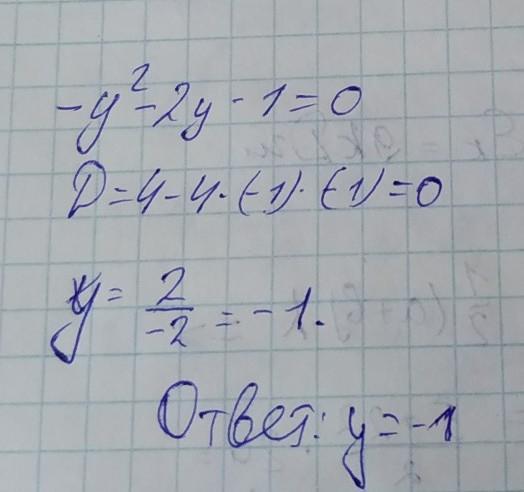 -y² - 2y - 1 = 0
D = 4 - 4 · (-1) · (-1) = 0
y = 2/-2 = -1.
Ответ: y = -1